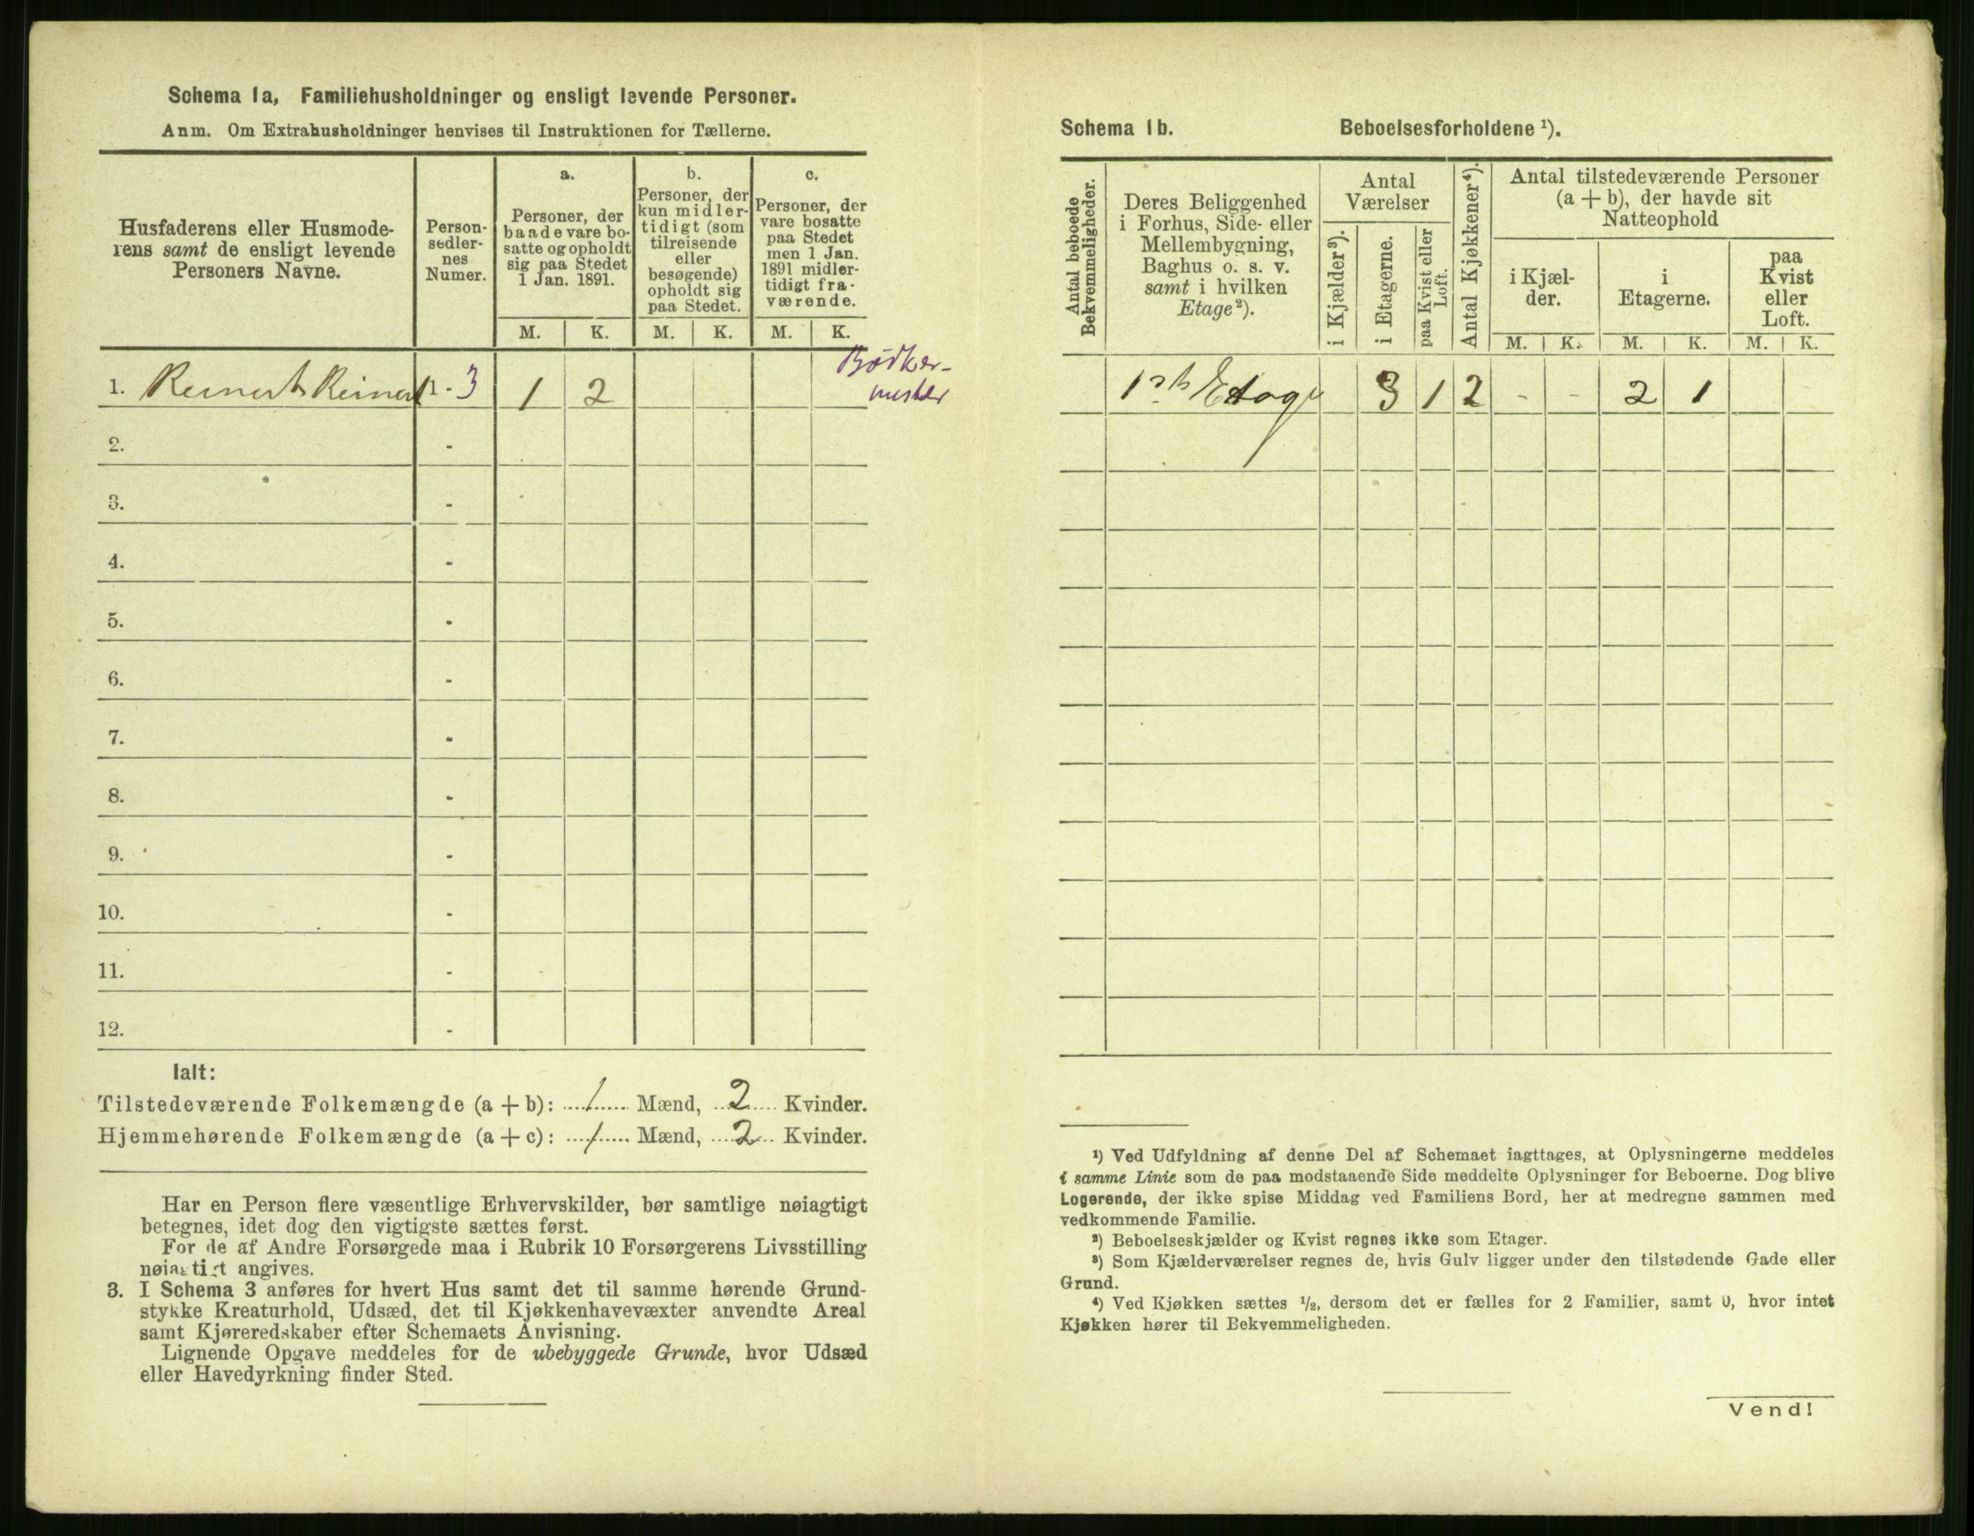 Schema 1a, Familiehusholdninger og ensligt levende Personer.
Anm. Om Extrahusholdninger henvises til Instruktionen for Tællerne.
Husfaderens eller Husmode-
rens samt de ensligt levende
Personers Navne.
Person-
sedler-
nes
Numer.
a.
Personer, der
baade vare bo-
satte og opholdt
sig paa Stedet
1 Jan. 1891.
b.
Personer, der
kun midler-
tidigt (som
tilreisende
eller
besøgende)
opholdt sig
paa Stedet.
c.
Personer, der
vare bosatte
paa Stedet
men 1 Jan.
1891 midler-
tidigt fra-
værende.
M. K. M. K. M. K.
1. Reinert Reinert 1 - 3 1 2 Bødker-
mester
2. -
3. -
4. -
5. -
6. -
7. -
8. -
9. -
10. -
11. -
12. -
Ialt:
Tilstedeværende Folkemængde (a + b): 1 Mænd, 2 Kvinder.
Hjemmehørende Folkemængde (a + c): 1 Mænd, 2 Kvinder.
Har en Person flere væsentlige Erhvervskilder, bør samtlige nøiagtigt
betegnes, idet dog den vigtigste sættes først.
For de af Andre Forsørgede maa i Rubrik 10 Forsørgerens Livsstilling
nøiagtigt angives.
3. I Schema 3 anføres for hvert Hus samt det til samme hørende Grund-
stykke Kreaturhold, Udsæd, det til Kjøkkenhavevæxter anvendte Areal
samt Kjøreredskaber efter Schemaets Anvisning.
Lignende Opgave meddeles for de ubebyggede Grunde, hvor Udsæd
eller Havedyrkning finder Sted.
Schema 1b. Beboelsesforholdene ¹).
Antal beboede
Bekvemmeligheder.
Deres Beliggenhed
i Forhus, Side- eller
Mellembygning,
Baghus o. s. v.
samt i hvilken
Etage²).
Antal
Værelser
i Kjælder³).
i Etagerne.
paa Kvist eller
Loft.
Antal Kjøkkener⁴).
Antal tilstedeværende Personer
(a + b), der havde sit
Natteophold
i Kjæl-
der.
i
Etagerne.
paa
Kvist
eller
Loft.
M. K. M. K. M. K.
1ste Etage 3 1 2 - - 2 1
¹) Ved Udfyldning af denne Del af Schemaet iagttages, at Oplysningerne meddeles
i samme Linie som de paa modstaaende Side meddelte Oplysninger for Beboerne. Dog blive
Logerende, der ikke spise Middag ved Familiens Bord, her at medregne sammen med
vedkommende Familie.
²) Beboelseskjælder og Kvist regnes ikke som Etager.
³) Som Kjælderværelser regnes de, hvis Gulv ligger under den tilstødende Gade eller
Grund.
⁴) Ved Kjøkken sættes ½, dersom det er fælles for 2 Familier, samt 0, hvor intet
Kjøkken hører til Bekvemmeligheden.
Vend!